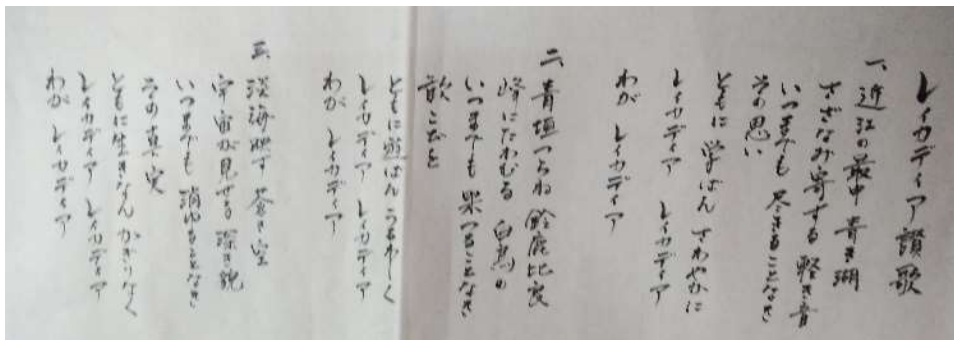 レイカディア讃歌
一、近江の最中 青き湖
さざなみ寄する 軽き音
いつまでも 尽きることなき
その思い
ともに 学ばん さわやかに
レイカディア レイカディア
わが レイカディア
二、青垣つらね 鈴鹿比良
峰にたわむる 白鳥の
いつまでも 果つることなき
歓ごと
ともに遊ばん うるわしく
レイカディア レイカディア
わが レイカディア
三、淡海映す 蒼き空
宇宙が見せる 深き
いつまでも 消ゆることなき
その真実
ともに生きなん かぎりなく
レイカディア レイカディア
わが レイカディア